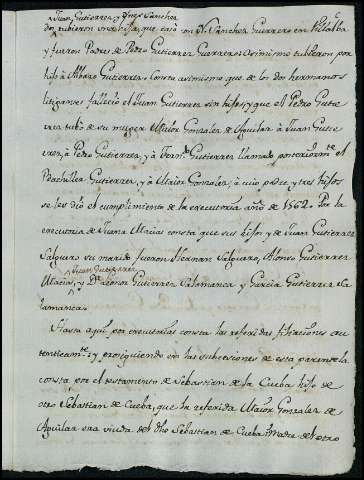 Juan Gutierrez y Ynes Sanchez
dos tubieron una hija, que casó con Nª Sanchez Guerrero en Villalba
y fueron Padres de Pedro Gutierrez Guerrero: Asimismo tubieron por
hijo á Alvaro Gutierrez. Consta asimismo que de los dos hermanos
litigantes fallecio el Juan Gutierrez sin hijos, y que el Pedro Gutie
rrez tubo de su muger Maior Gonzalez de Aguilar à Juan Gutie
rrez, à Pedro Gutierrez, y à Ferndo Gutierrez llamado posteriormte el
Bachiller Gutierrez, y à Maior Gonzalez, à cuio padre, y tres hijos
se les dió el cumplimiento de la executoria año de 1562. Por la
executoria de Juana Macias consta que sus hijos y de Juan Gutierrez
Salguero su marido fueron Hernan Salguero, Alonso Gutierrez
Juan Gutierrez
Macias, y Dª Leonor Gutierrez Salamanca y Garcia Gutierrez Sa
lamanca.
Hasta aqui por executorias consta las referidas filiaciones au
tenticamte y prosiguiendo en las subcesiones de esta parentela
consta por el testamento de Sebastian de la Cueba hijo de
otro Sebastian de Cueba, que la referida Maior Gonzalez de
Aguilar era viuda del dho Sebastian de Cueba Madre del otro